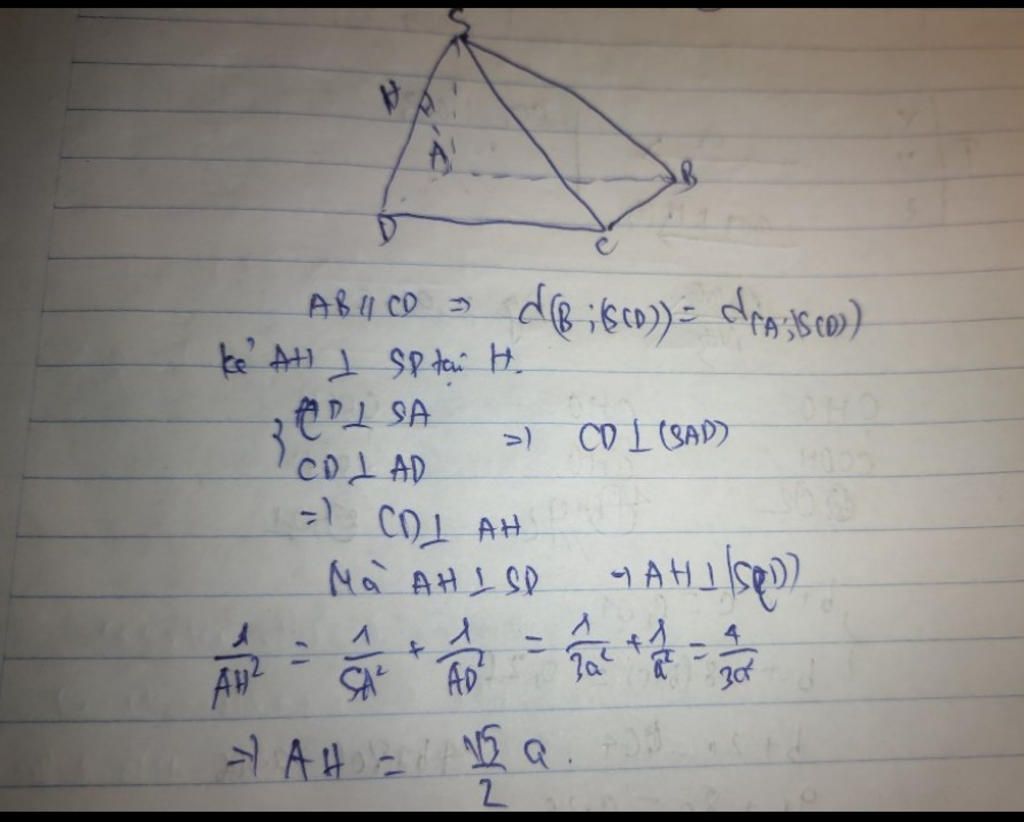 S
H
A
B
D
C
AB // CD ⇒ d(B;(SCD)) = d(A;(SCD))
kẻ AH ⊥ SD tại H.
CD ⊥ SA
⇒ CD ⊥ (SAD)
CD ⊥ AD
⇒ CD ⊥ AH
Mà AH ⊥ SD → AH ⊥ (SCD)
1/AH² = 1/SA² + 1/AD² = 1/3a² + 1/a² = 4/3a²
⇒ AH =